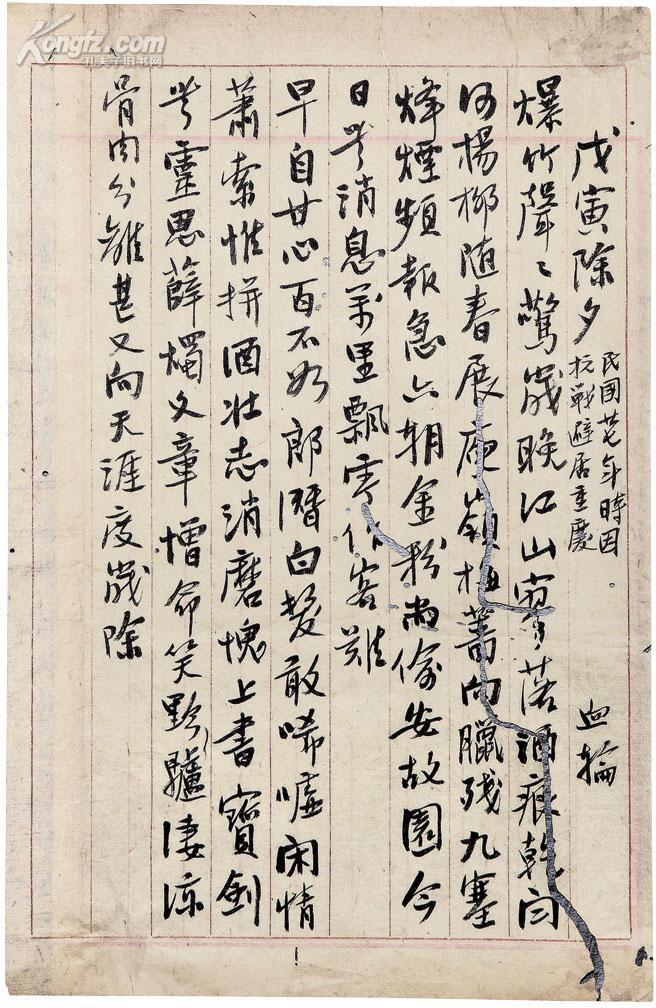 Kongfz.com
孔夫子旧书网
戊寅除夕
民国廿七年時因
抗戰避居重慶
血輪
爆竹聲〻驚歲晚江山寥落酒痕乾白
河楊柳随春展庾嶺梅蕚向臘残九塞
烽煙頻報急六朝金粉尚偷安故園今
日無消息萬里飄零作客難
早自甘心百不如郎潛白髮敢唏嘘闲情
蕭索惟拼酒壮志消磨愧上書寶劍
無靈思薛燭文章憎命笑黔驢淒涼
骨肉分離甚又向天涯度歲除